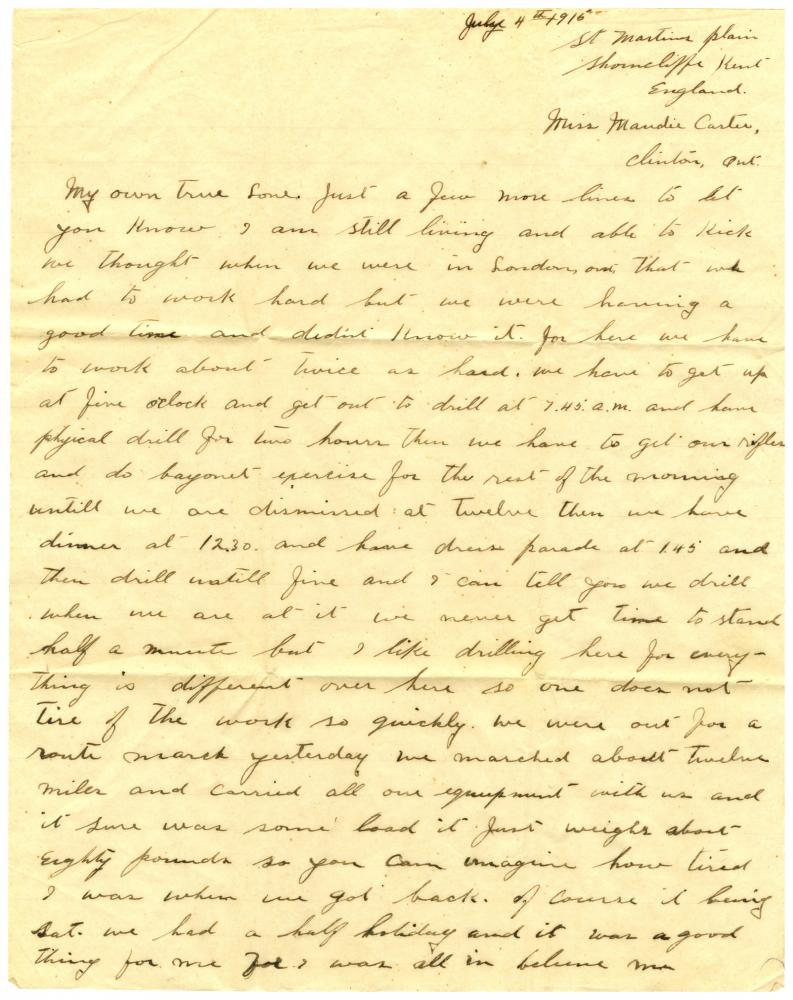 July 4th 1915
St Martins plain
Shorncliffe Kent
England.
Miss Maudie Carter,
Clinton, Ont.
My own true Love. Just a few more lines to let
you know I am still living and able to kick
we thought when we were in London ont, that we
had to work hard but we were having a
good time and dident know it. for here we have
to work about twice as hard. we have to get up
at five oclock and get out to drill at 7.45. a.m. and have
phyical drill for two hours then we have to get our rifles
and do bayonet exercise for the rest of the morning
untill we are dismissed at twelve then we have
dinner at 12.30. and have dress parade at 1.45 and
then drill untill five and I can tell you we drill
when we are at it we never get time to stand
half a minute but I like drilling here for every-
thing is different over here so one does not
tire of the work so quickly. we were out for a
route march yesterday we marched about twelve
miles and carried all our equipment with us and
it sure was some load it just weighs about
Eighty pounds so you can imagine how tired
I was when we got back. of course it being
Sat. we had a half holiday and it was a good
thing for me for I was all in believe me